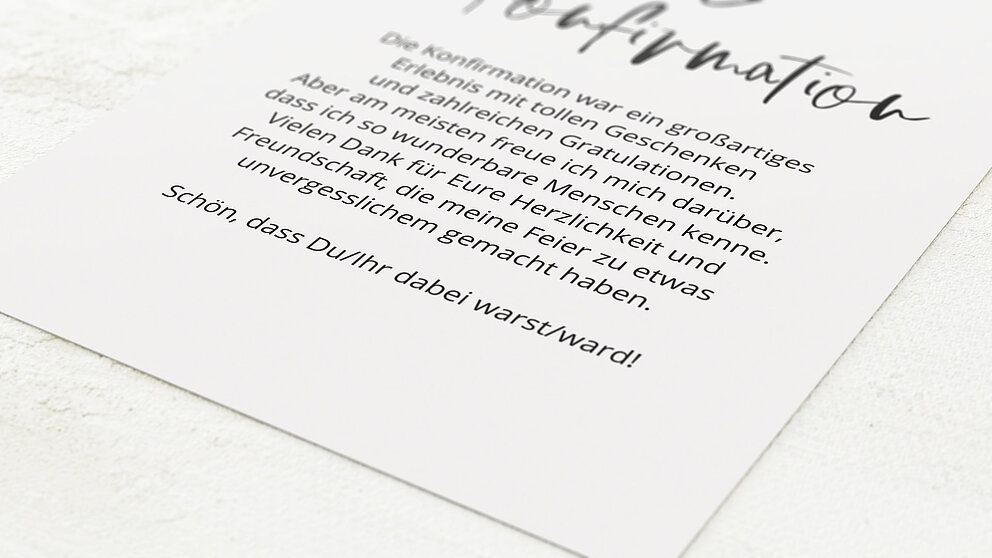 Konfirmation
Die Konfirmation war ein großartiges
Erlebnis mit tollen Geschenken
und zahlreichen Gratulationen.
Aber am meisten freue ich mich darüber,
dass ich so wunderbare Menschen kenne.
Vielen Dank für Eure Herzlichkeit und
Freundschaft, die meine Feier zu etwas
unvergesslichem gemacht haben.
Schön, dass Du/Ihr dabei warst/ward!